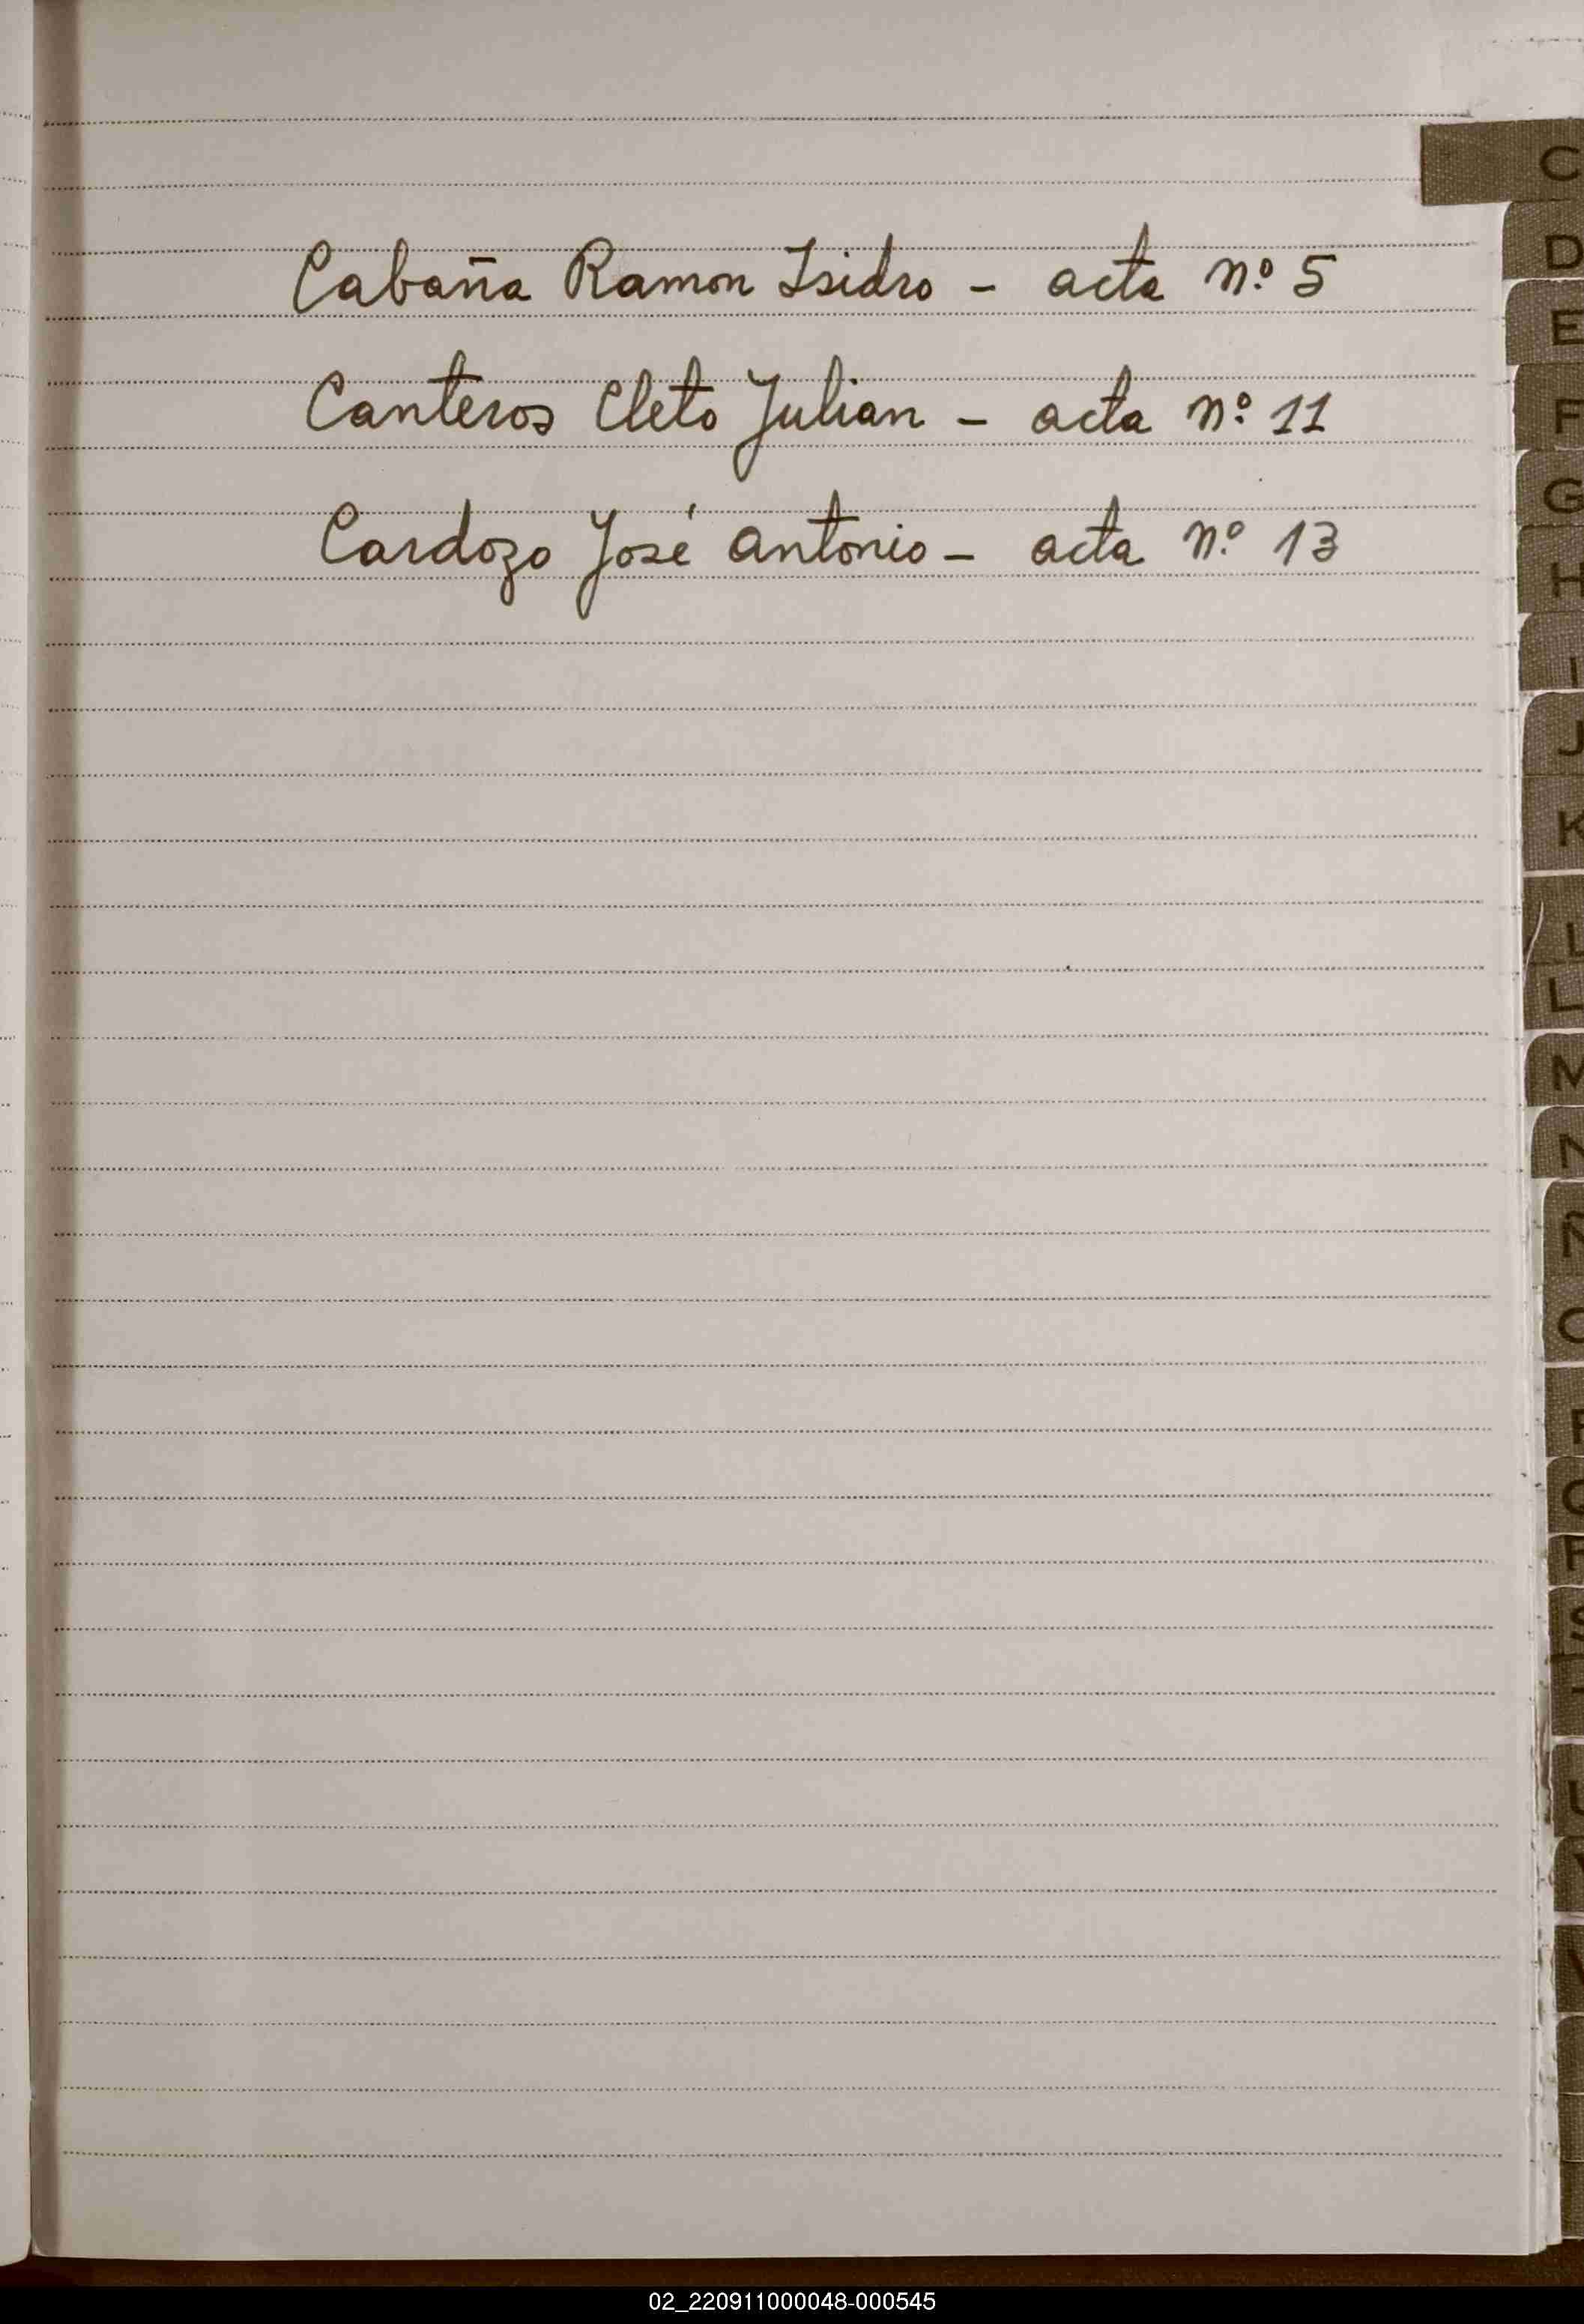 Cabaña Ramon Isidro - acta nº 5
Canteros Cleto Julian - acta nº 11
Cardozo José Antonio - acta nº 13
C
D
E
F
G
H
I
J
K
L
L
M
N
Ñ
O
P
Q
R
S
U
02_220911000048-000545